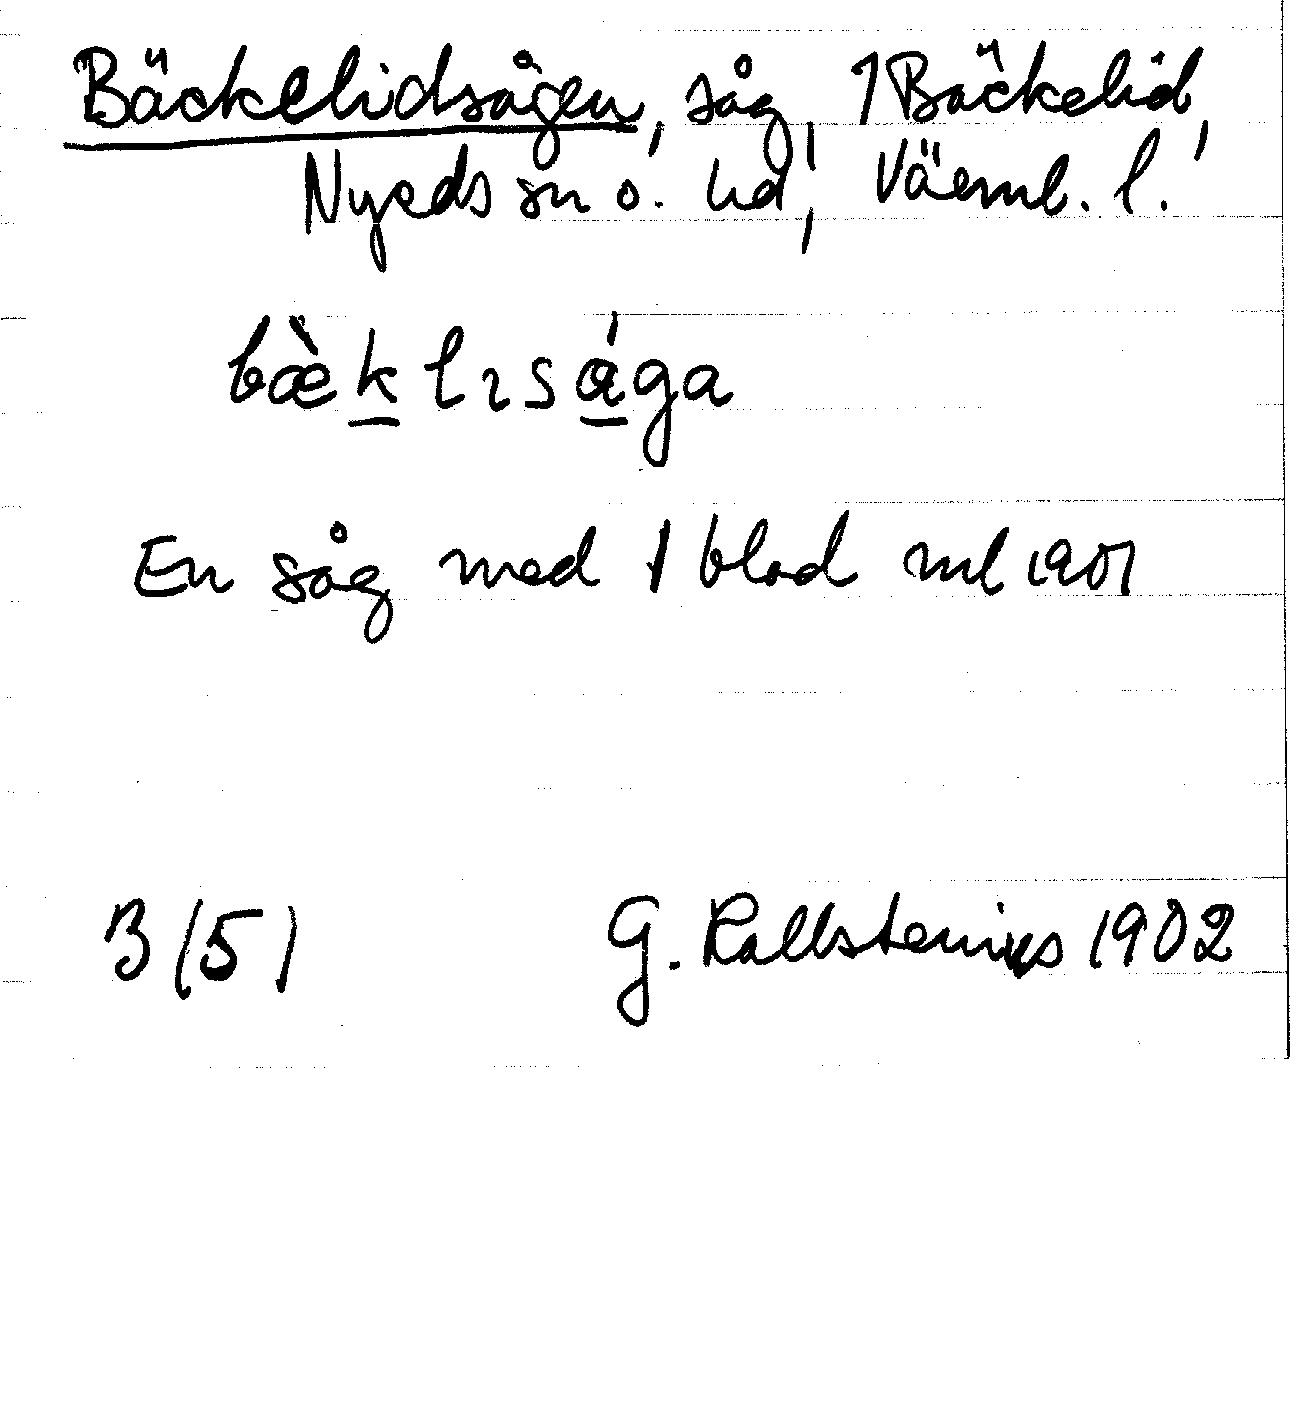 Bäckelidsågen, såg, 1 Bäckelid,
Nyeds sn o. hd, Värml. l.
bæ̀k̲lɪsá̲ga
En såg med 1 blad ml 1901
B (5)
G. Kallstenius 1902